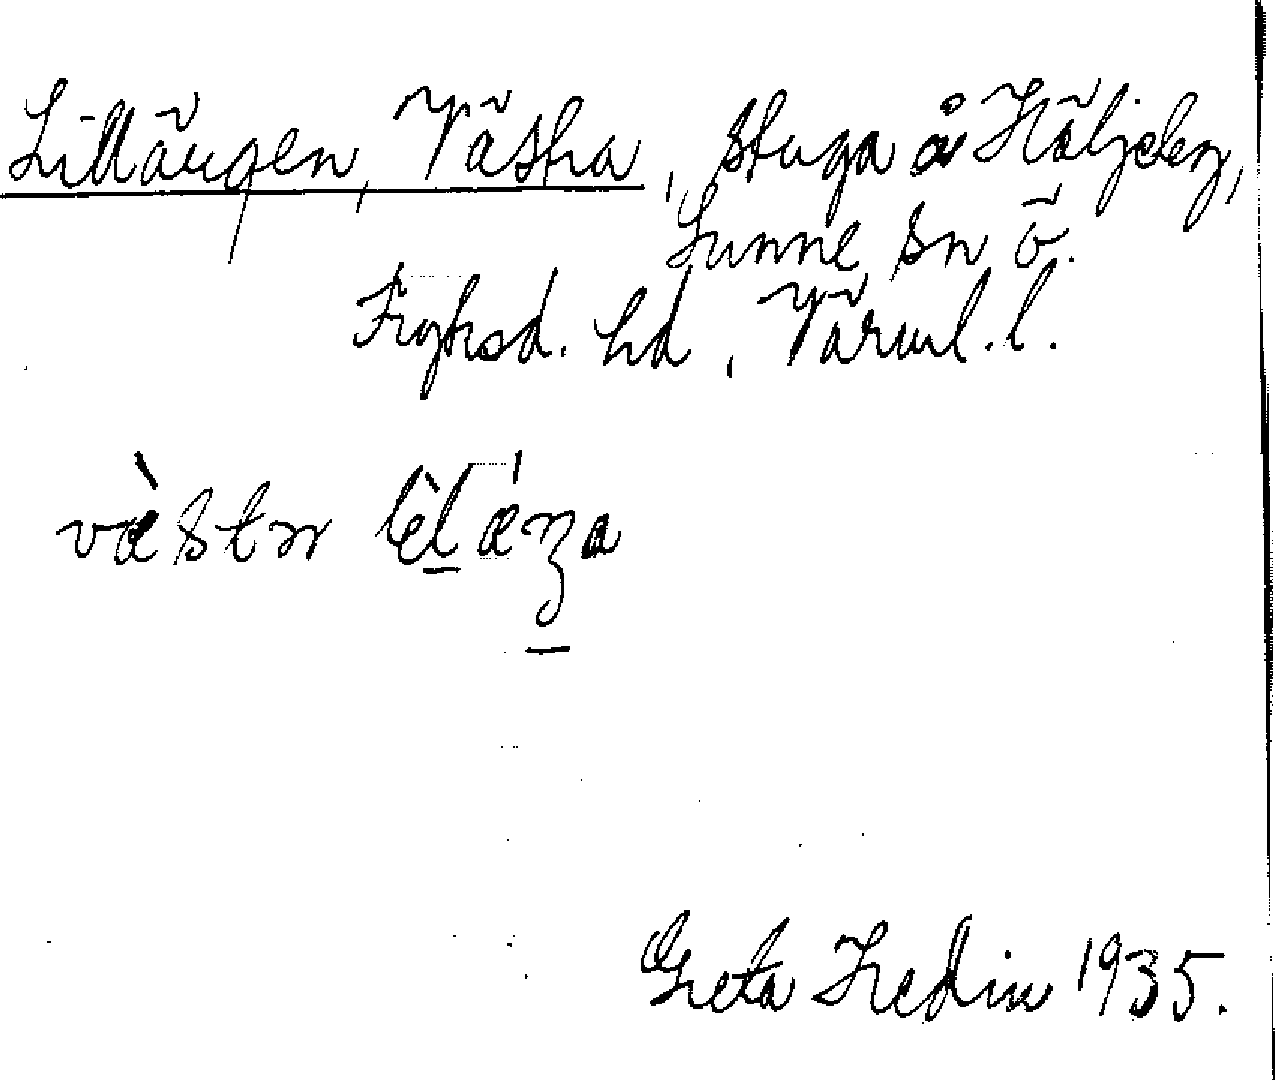 Lillängen, Västra, stuga å Häljeby,
Sunne sn ö.
Fryksd. hd, Värml. l.
væ̀str lìlǽŋa
Greta Hedin 1935.